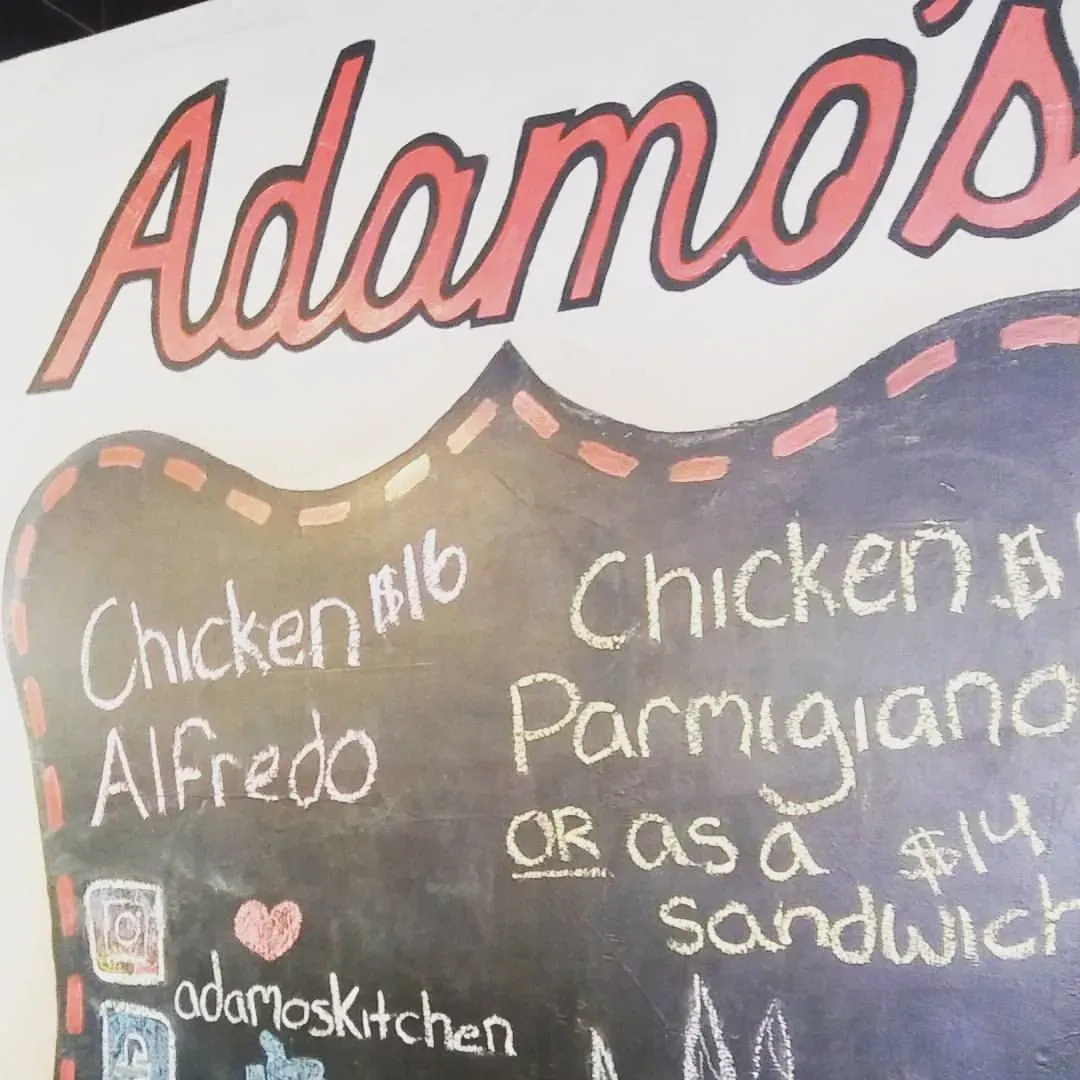 Adamo's
Chicken $16
Alfredo
Chicken $1
Parmigiano
OR as a $14
sandwich
adamoskitchen